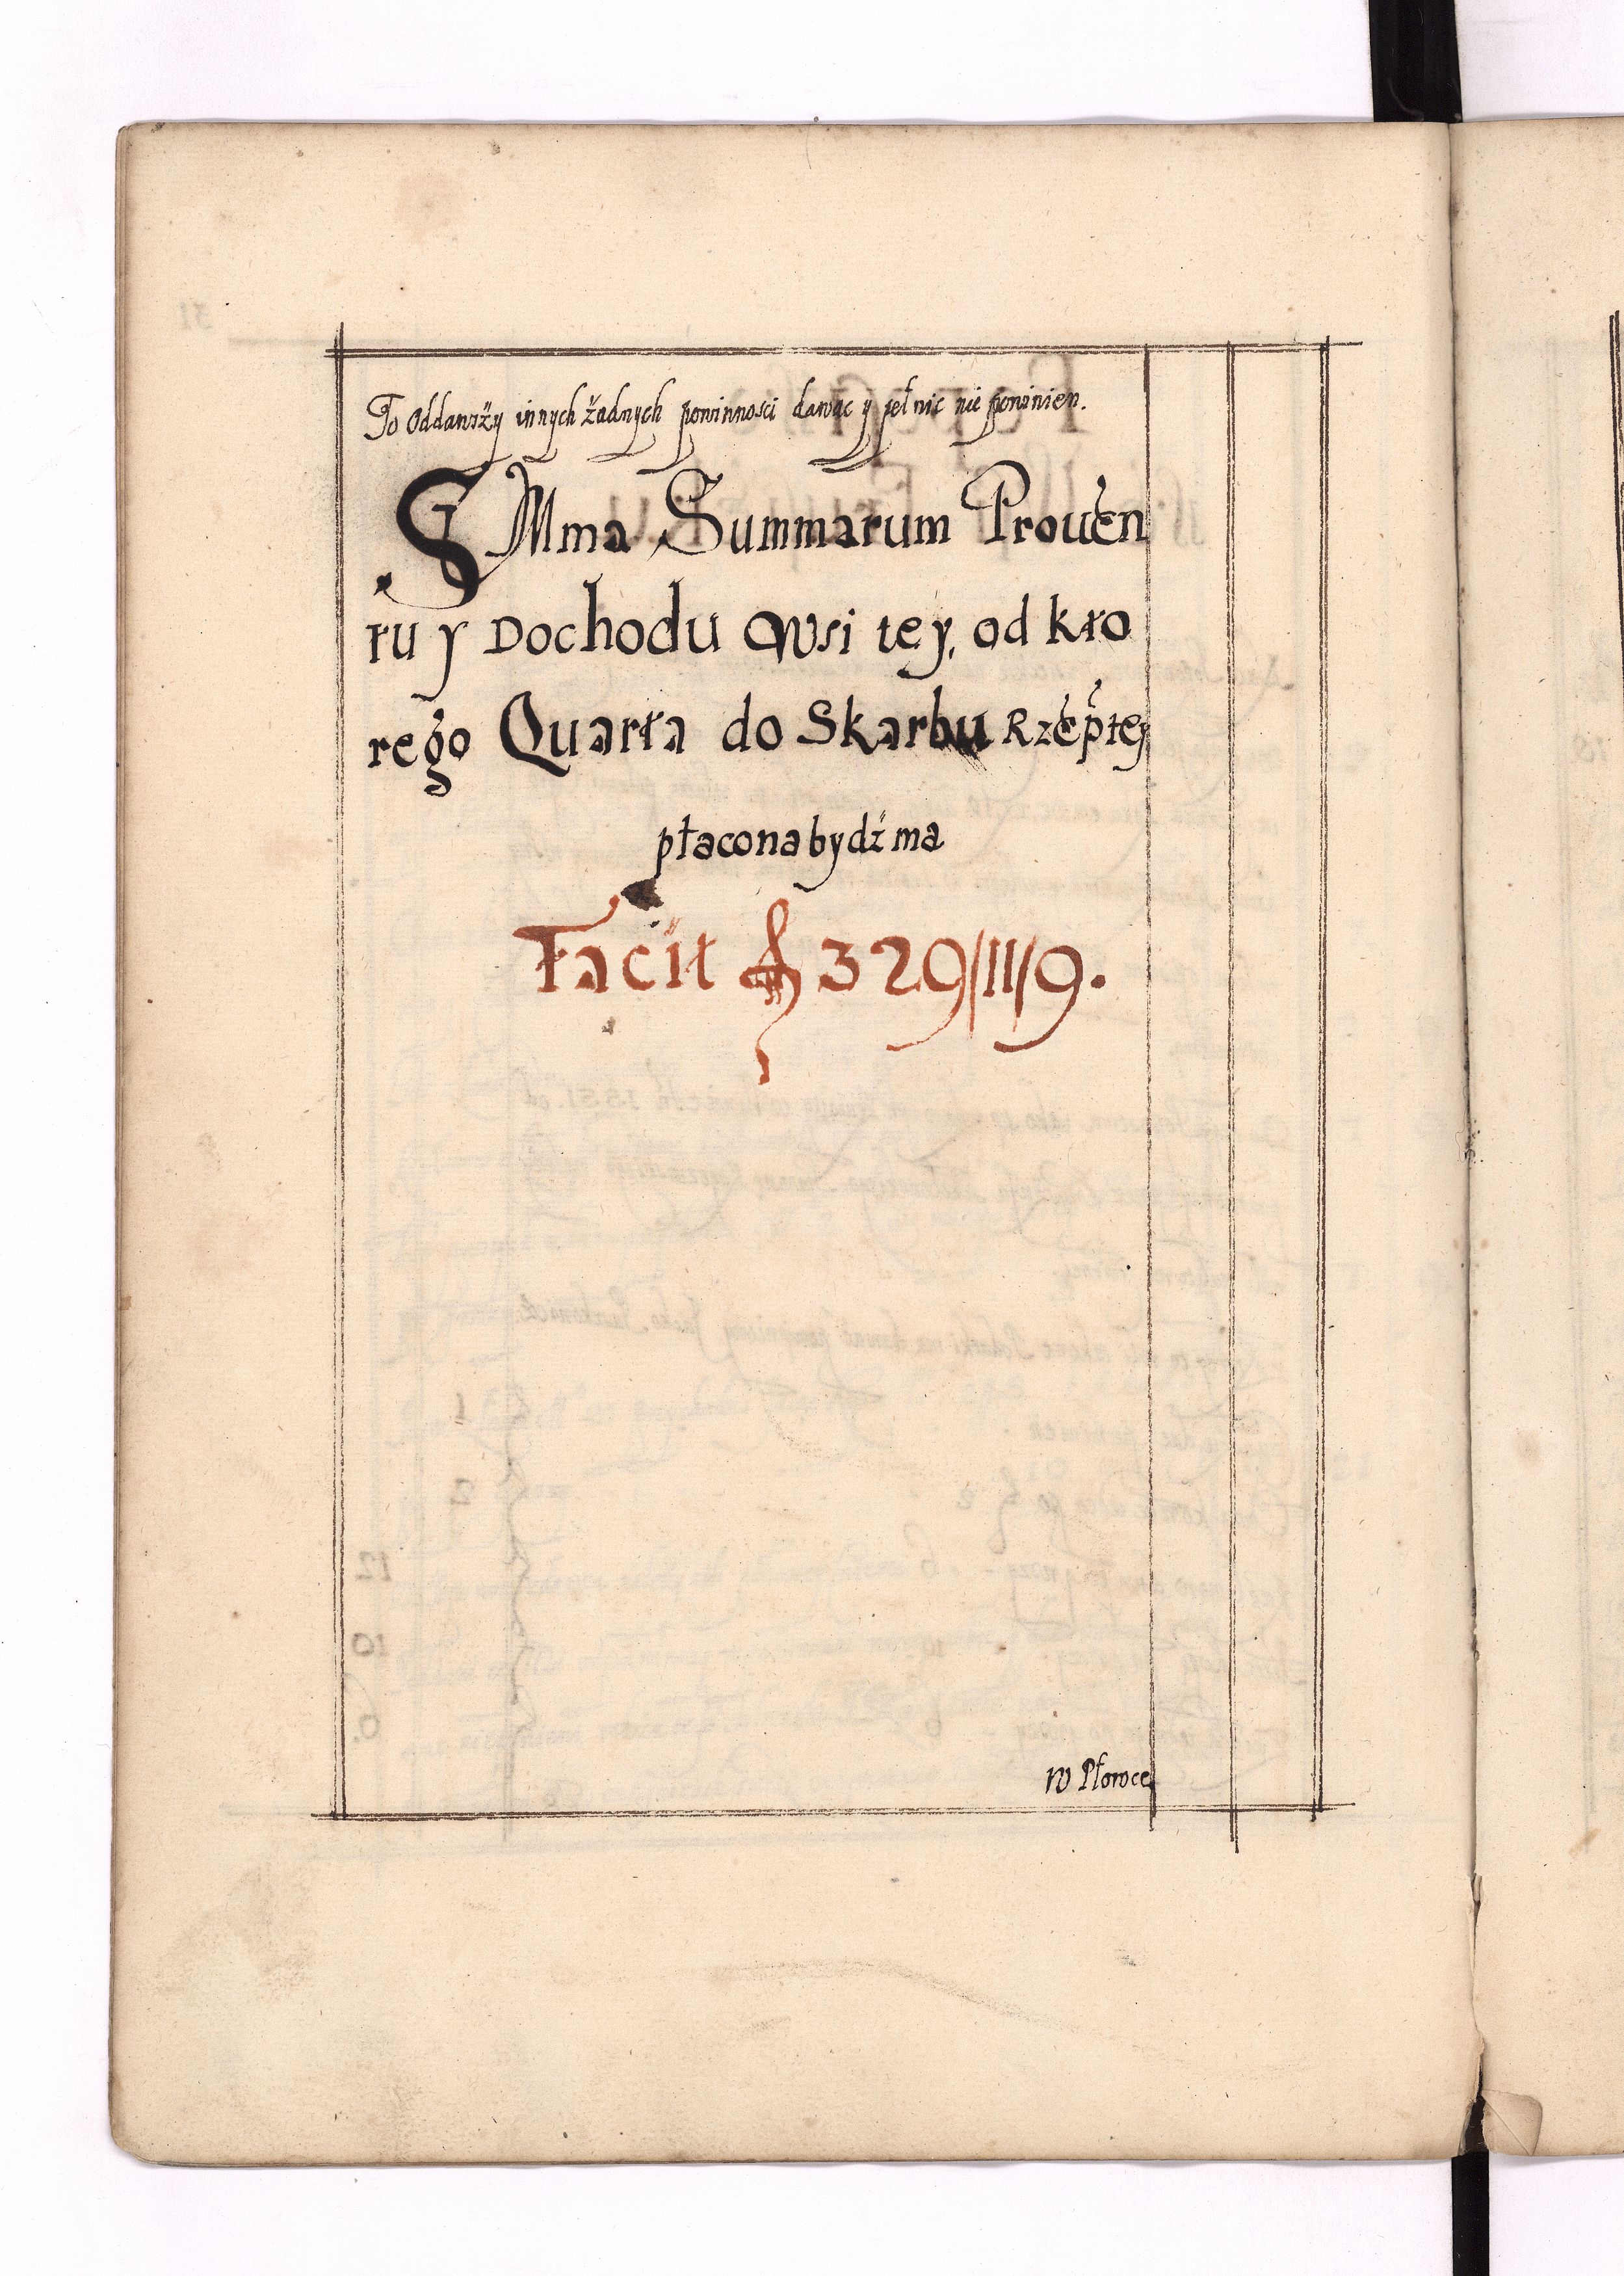 To Oddawszÿ innych żadnych powinnosci dawac y pełnic nie powinien.
SMma Summarum Prouen
tu y Dochodu Wsi tey, od kto
rego Quarta do Skarbu Rzeptey
płacona bydź ma
Facit fl 329/11/9.
w Płowce